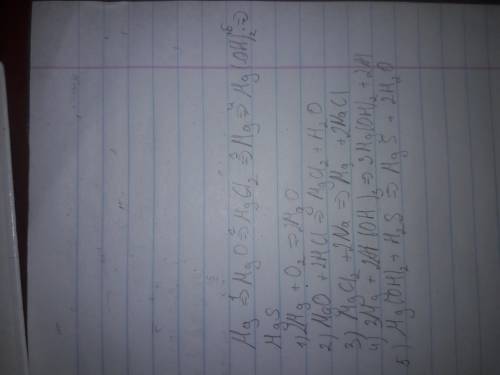 Mg ⇒¹ MgO ⇒² MgCl₂ ⇒³ Mg ⇒⁴ Mg(OH)₂ ⇒⁵
MgS
1) 2Mg + O₂ ⇒ 2MgO
2) MgO + 2HCl ⇒ MgCl₂ + H₂O
3) MgCl₂ + 2Na ⇒ Mg + 2NaCl
4) 3Mg + 2Al(OH)₃ ⇒ 3Mg(OH)₂ + 2Al
5) Mg(OH)₂ + H₂S ⇒ MgS + 2H₂O